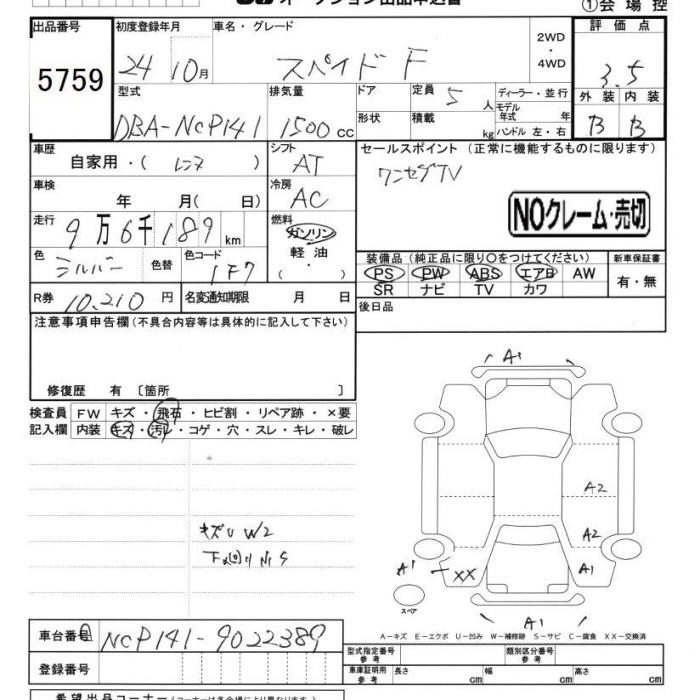 オークション出品申込書 ①会場控
出品番号 初度登録年月 車名・グレード 評価点
5759 24 10月 スペイド F 2WD・4WD 3.5
型式 排気量 ドア 定員 5 人 ディーラー・並行 外装 内装
DBA-NCP141 1500 cc 形状 積載 kg モデル年式 年 ハンドル 左・右 B B
車歴 自家用・( レンタ ) シフト AT セールスポイント (正常に機能するものに限ります)
車検 年 月( 日) 冷房 AC ワンセグTV
NOクレーム・売切
走行 9万6千189km 燃料 ガソリン 軽油 ( ・ )
色 シルバー 色替 色コード 1F7
装備品 (純正品に限り○をつけてください) 新車保証書
PS PW ABS エアB AW 有・無
SR ナビ TV カワ
R券 10,210 円 名変通知期限 月 日 後日品
注意事項申告欄(不具合内容等は具体的に記入して下さい)
修復歴 有 〔箇所 〕
検査員 FW キズ・飛石・ヒビ割・リペア跡・×要
記入欄 内装 キズ・汚レ・コゲ・穴・スレ・キレ・破レ
キズU W2
下回りサS
A1
A2
A2
A1 XX A1
スペア
A1
A-キズ E-エクボ U-凹み W-補修跡 S-サビ C-腐食 XX-交換済
車台番号 NCP141-9022389
登録番号
型式指定番号 参考 類別区分番号 参考
車庫証明用 参考 長さ cm 幅 cm 高さ cm
希望出品コーナー